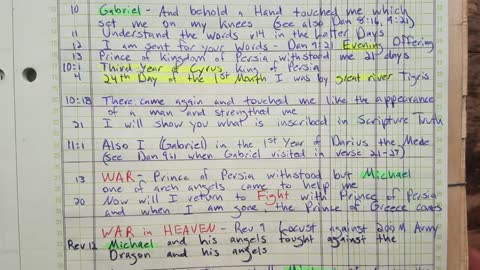 10 Gabriel - And behold a Hand touched me which
set me on my knees (see also Dan 8:16, 9:21)
11 Understand the words v14 in the Latter Days
12 I am sent for your words - Dan 9:21 Evening Offering
13 Prince of Kingdom of Persia withstood me 21 days
10:1 Third Year of Cyrus King of Persia
4 24th Day of the 1st Month I was by great river Tigris
10:18 There came again and touched me like the appearance
of a man and strengthed me
21 I will show you what is inscribed in Scripture Truth
11:1 Also I (Gabriel) in the 1st Year of Darius the Mede
(see Dan 9:21 when Gabriel visited in verse 21-27)
13 WAR - Prince of Persia withstood but Michael
one of arch angels came to help me
20 Now will I return to Fight with Prince of Persia
and when I am gone the Prince of Greece comes
WAR in HEAVEN - Rev 9 Locust against 200 M Army
Rev 12 Michael and his angels fought against the
Dragon and his angels